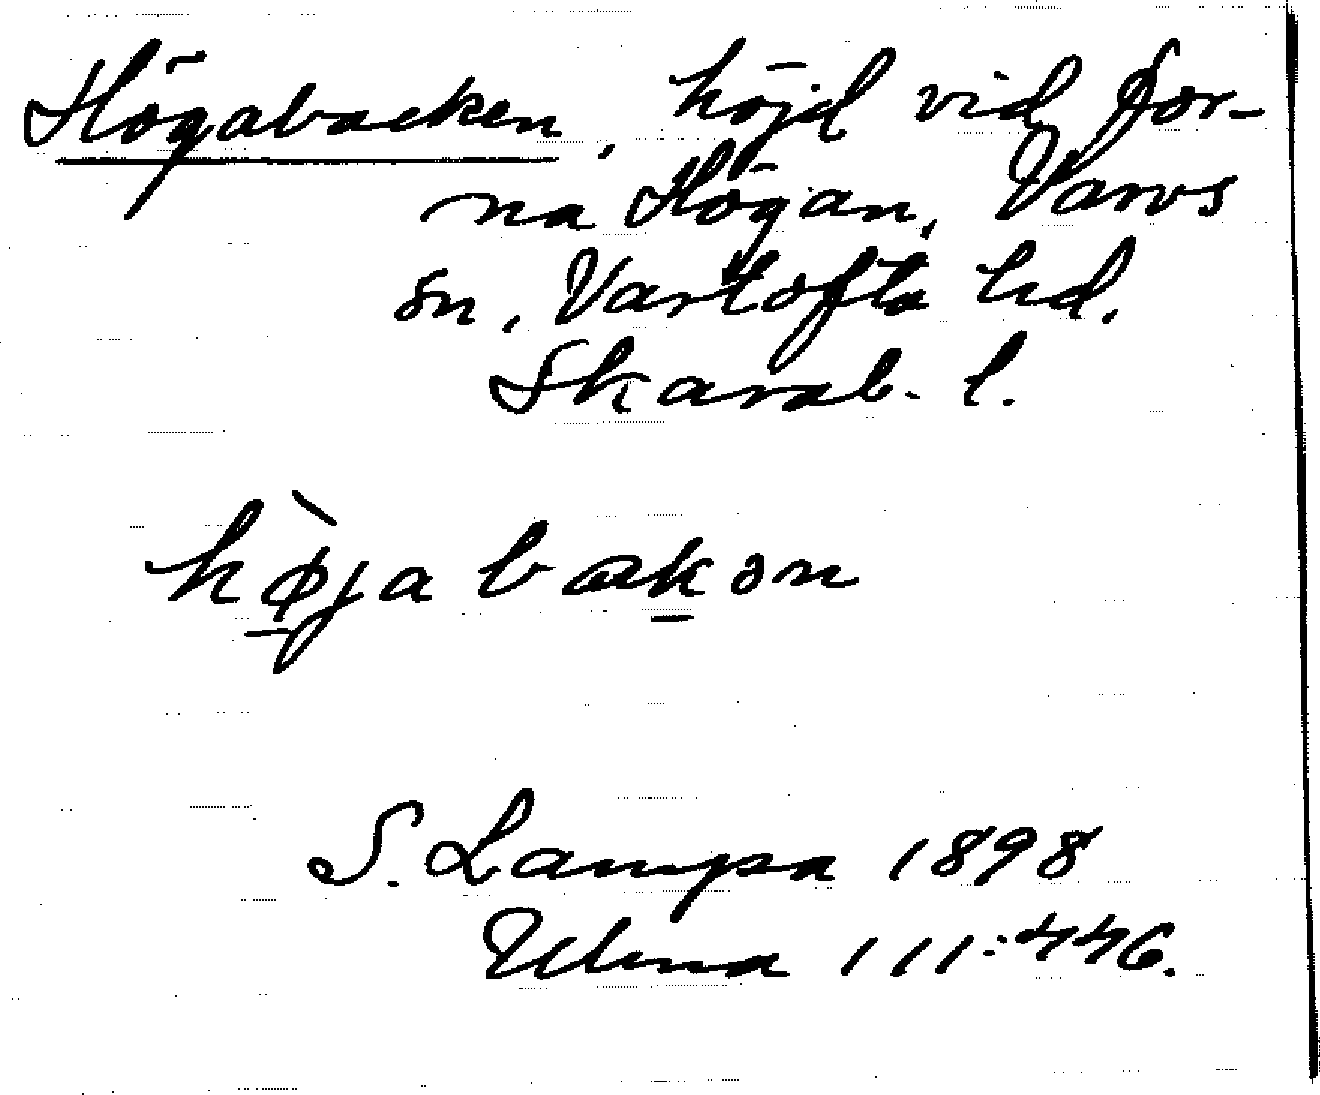 Högabacken, höjd vid for-
na Högan, Varvs
sn, Vartofta hd.
Skarab. l.
hø̀jabakən
S. Lampa 1898
Ulma 111:446.